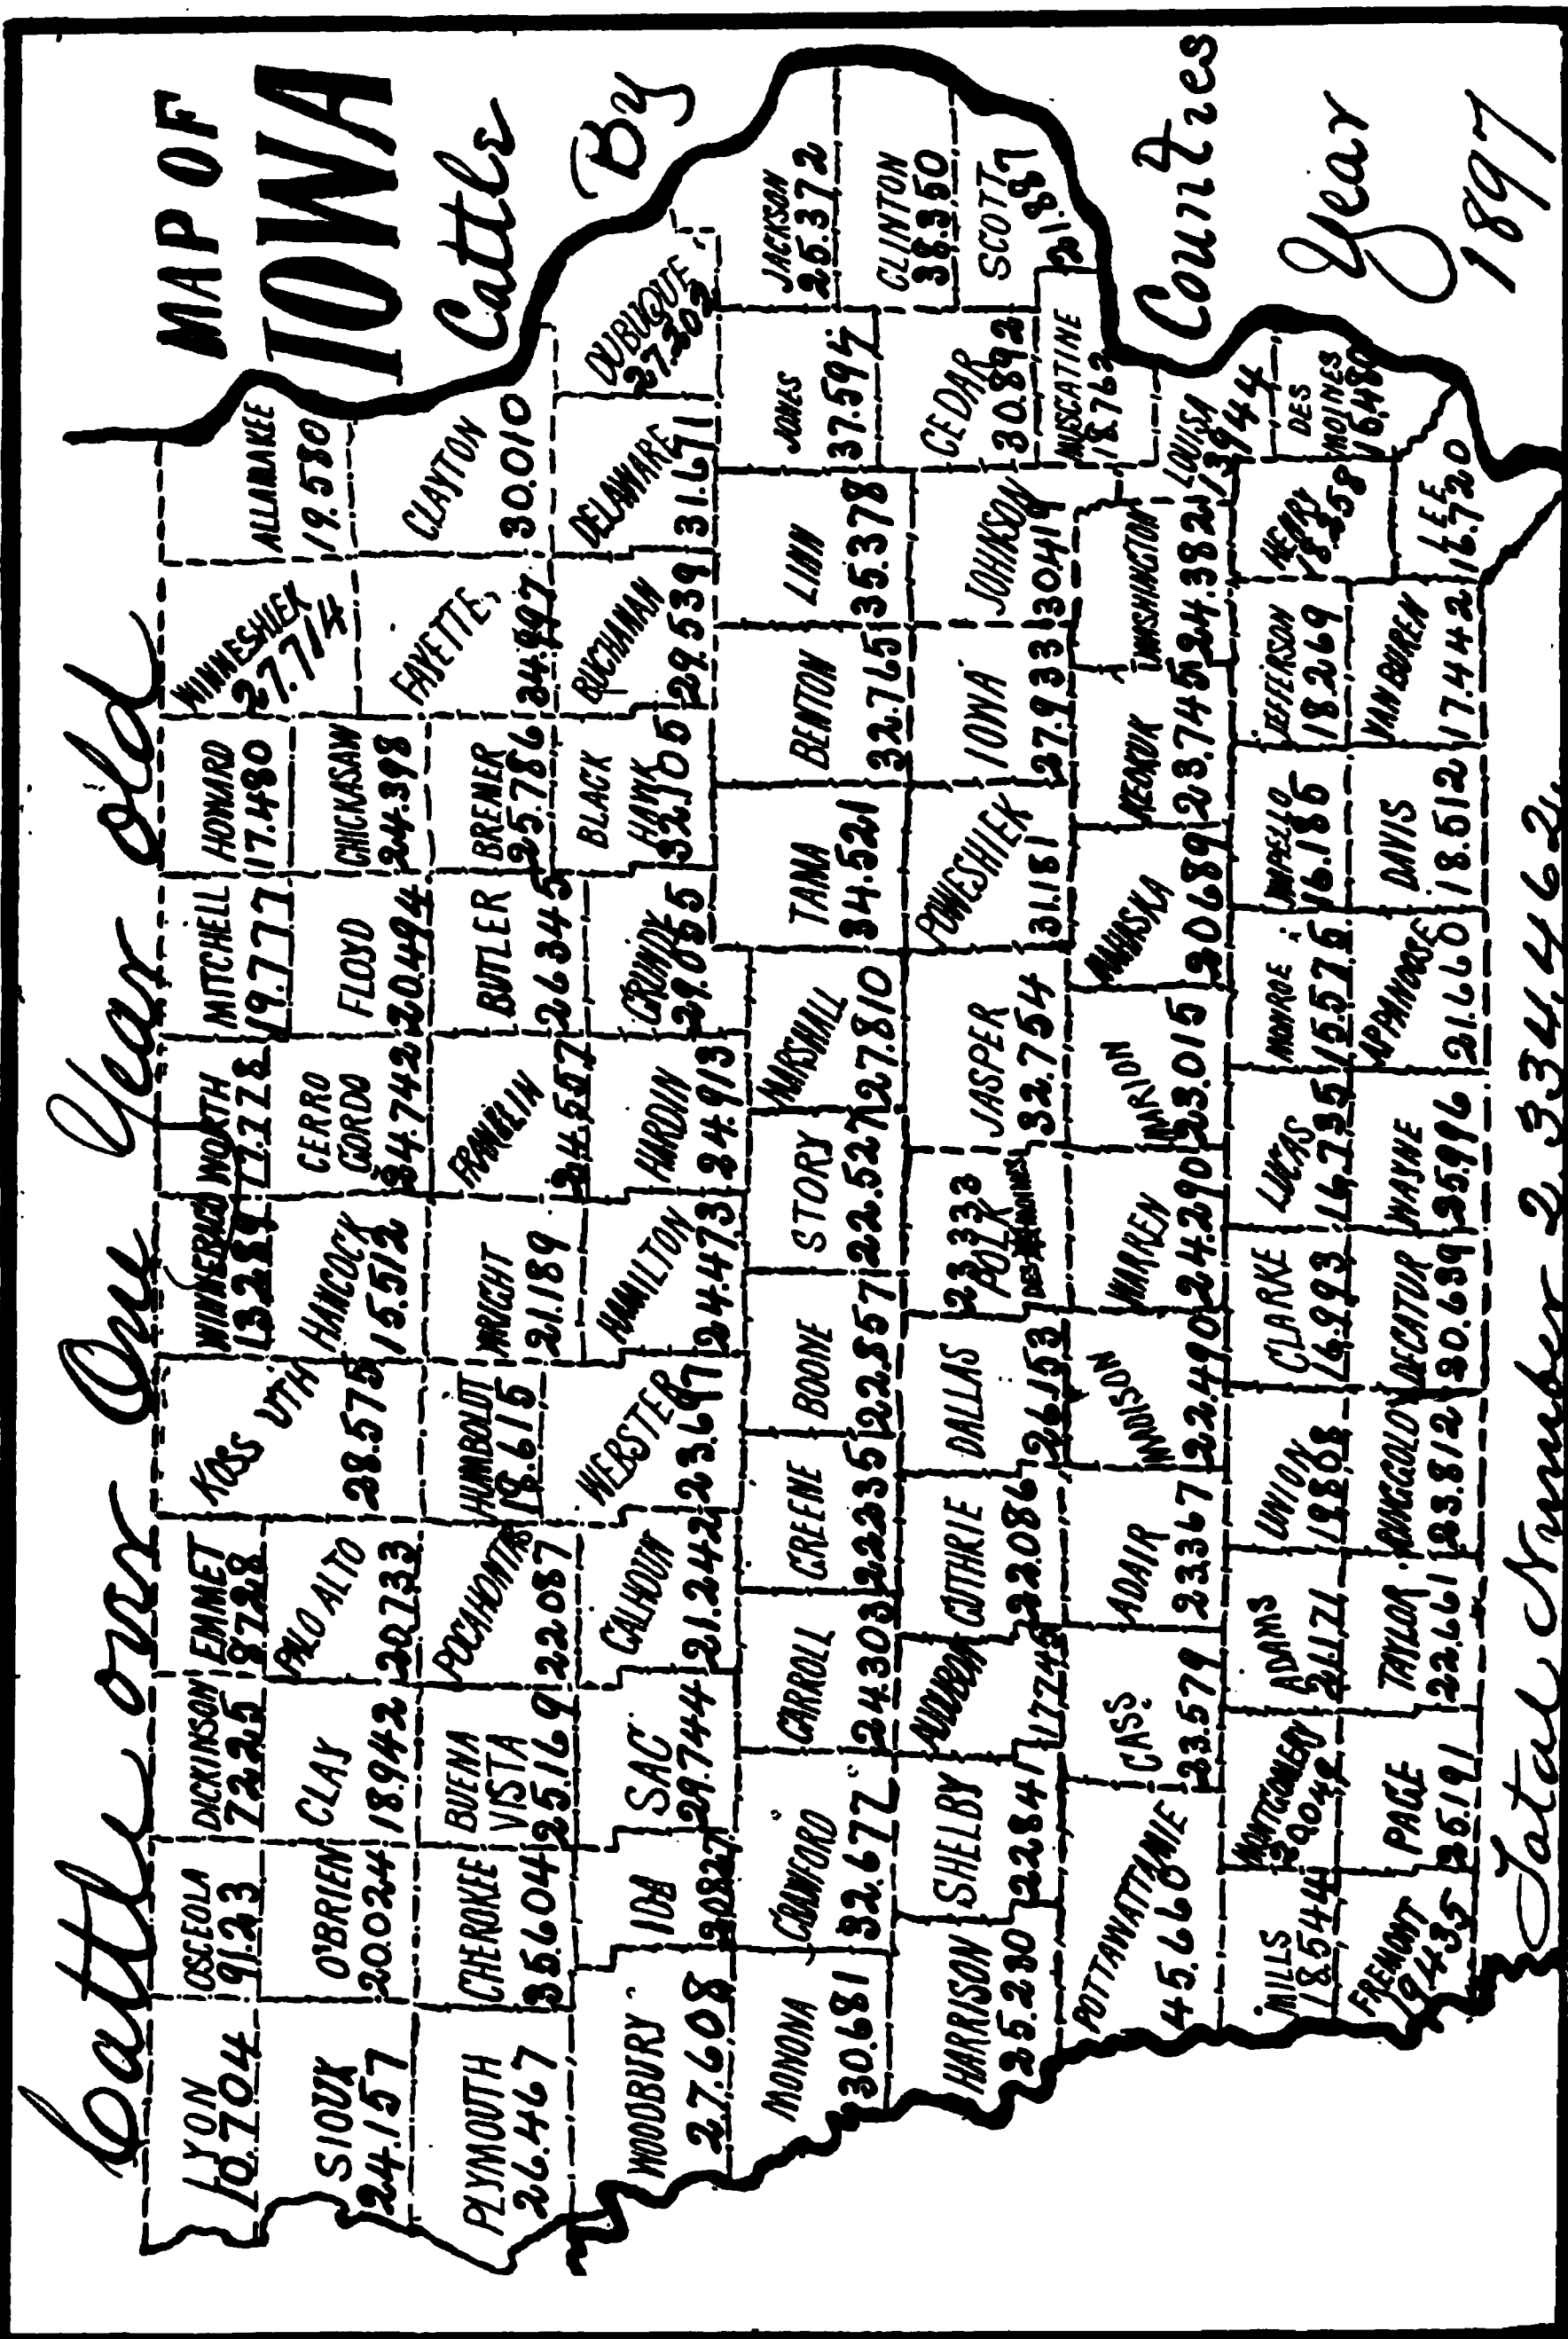 Cattle over One Year old
MAP OF
IOWA
Cattle
By
Counties
Year
1897
LYON
10.704
OSCEOLA
9123
DICKINSON
7225
EMMET
8728
KOSSUTH
28.575
WINNEBAGO
13289
WORTH
17.778
MITCHELL
19.777
HOWARD
17.480
WINNESHIEK
27.714
ALLAMAKEE
19.580
SIOUX
24.157
O'BRIEN
20.024
CLAY
18.942
PALO ALTO
20733
HANCOCK
15.512
CERRO
GORDO
24.742
FLOYD
20.494
CHICKASAW
24.398
FAYETTE
34.997
CLAYTON
30.010
PLYMOUTH
26.467
CHEROKEE
35.604
BUENA
VISTA
25.169
POCAHONTAS
22087
HUMBOLDT
18.615
WRIGHT
21.189
FRANKLIN
24.557
BUTLER
26345
BREMER
25.786
BLACK
HAWK
32105
BUCHANAN
29.539
DELAWARE
31.671
DUBUQUE
27.302
WOODBURY
27.608
IDA
20827
SAC
29.744
CALHOUN
21.242
WEBSTER
23.697
HAMILTON
24.473
HARDIN
24.913
GRUNDY
29.055
MONONA
30.681
CRAWFORD
32.677
CARROLL
24.303
GREENE
22235
BOONE
22.857
STORY
22.527
MARSHALL
27.810
TAMA
34.521
BENTON
32.765
LINN
35.378
JONES
37.594
JACKSON
25.372
CLINTON
38.350
SCOTT
21.887
HARRISON
25.230
SHELBY
22841
AUDUBON
17745
GUTHRIE
22.086
DALLAS
26.153
23333
POLK
DES MOINES
JASPER
32.754
POWESHIEK
31.181
IOWA
27.933
JOHNSON
30419
CEDAR
30.892
MUSCATINE
18.762
POTTAWATTAMIE
45.660
CASS
23.579
ADAIR
23367
MADISON
22.490
WARREN
24.290
MARION
23.015
MAHASKA
20689
KEOKUK
23.745
WASHINGTON
24.382
LOUISA
13944
MILLS
18.544
MONTGOMERY
20042
ADAMS
21.171
UNION
19808
CLARKE
16.993
LUCAS
16.735
MONROE
15.576
WAPELLO
16.186
JEFFERSON
18.269
HENRY
18.258
DES
MOINES
16.480
FREMONT
19435
PAGE
26.191
TAYLOR
22.661
RINGGOLD
23.812
DECATUR
20.639
WAYNE
25.996
APPANOOSE
21.660
DAVIS
18.512
VAN BUREN
17.442
LEE
16.720
Total Number 2.334.462